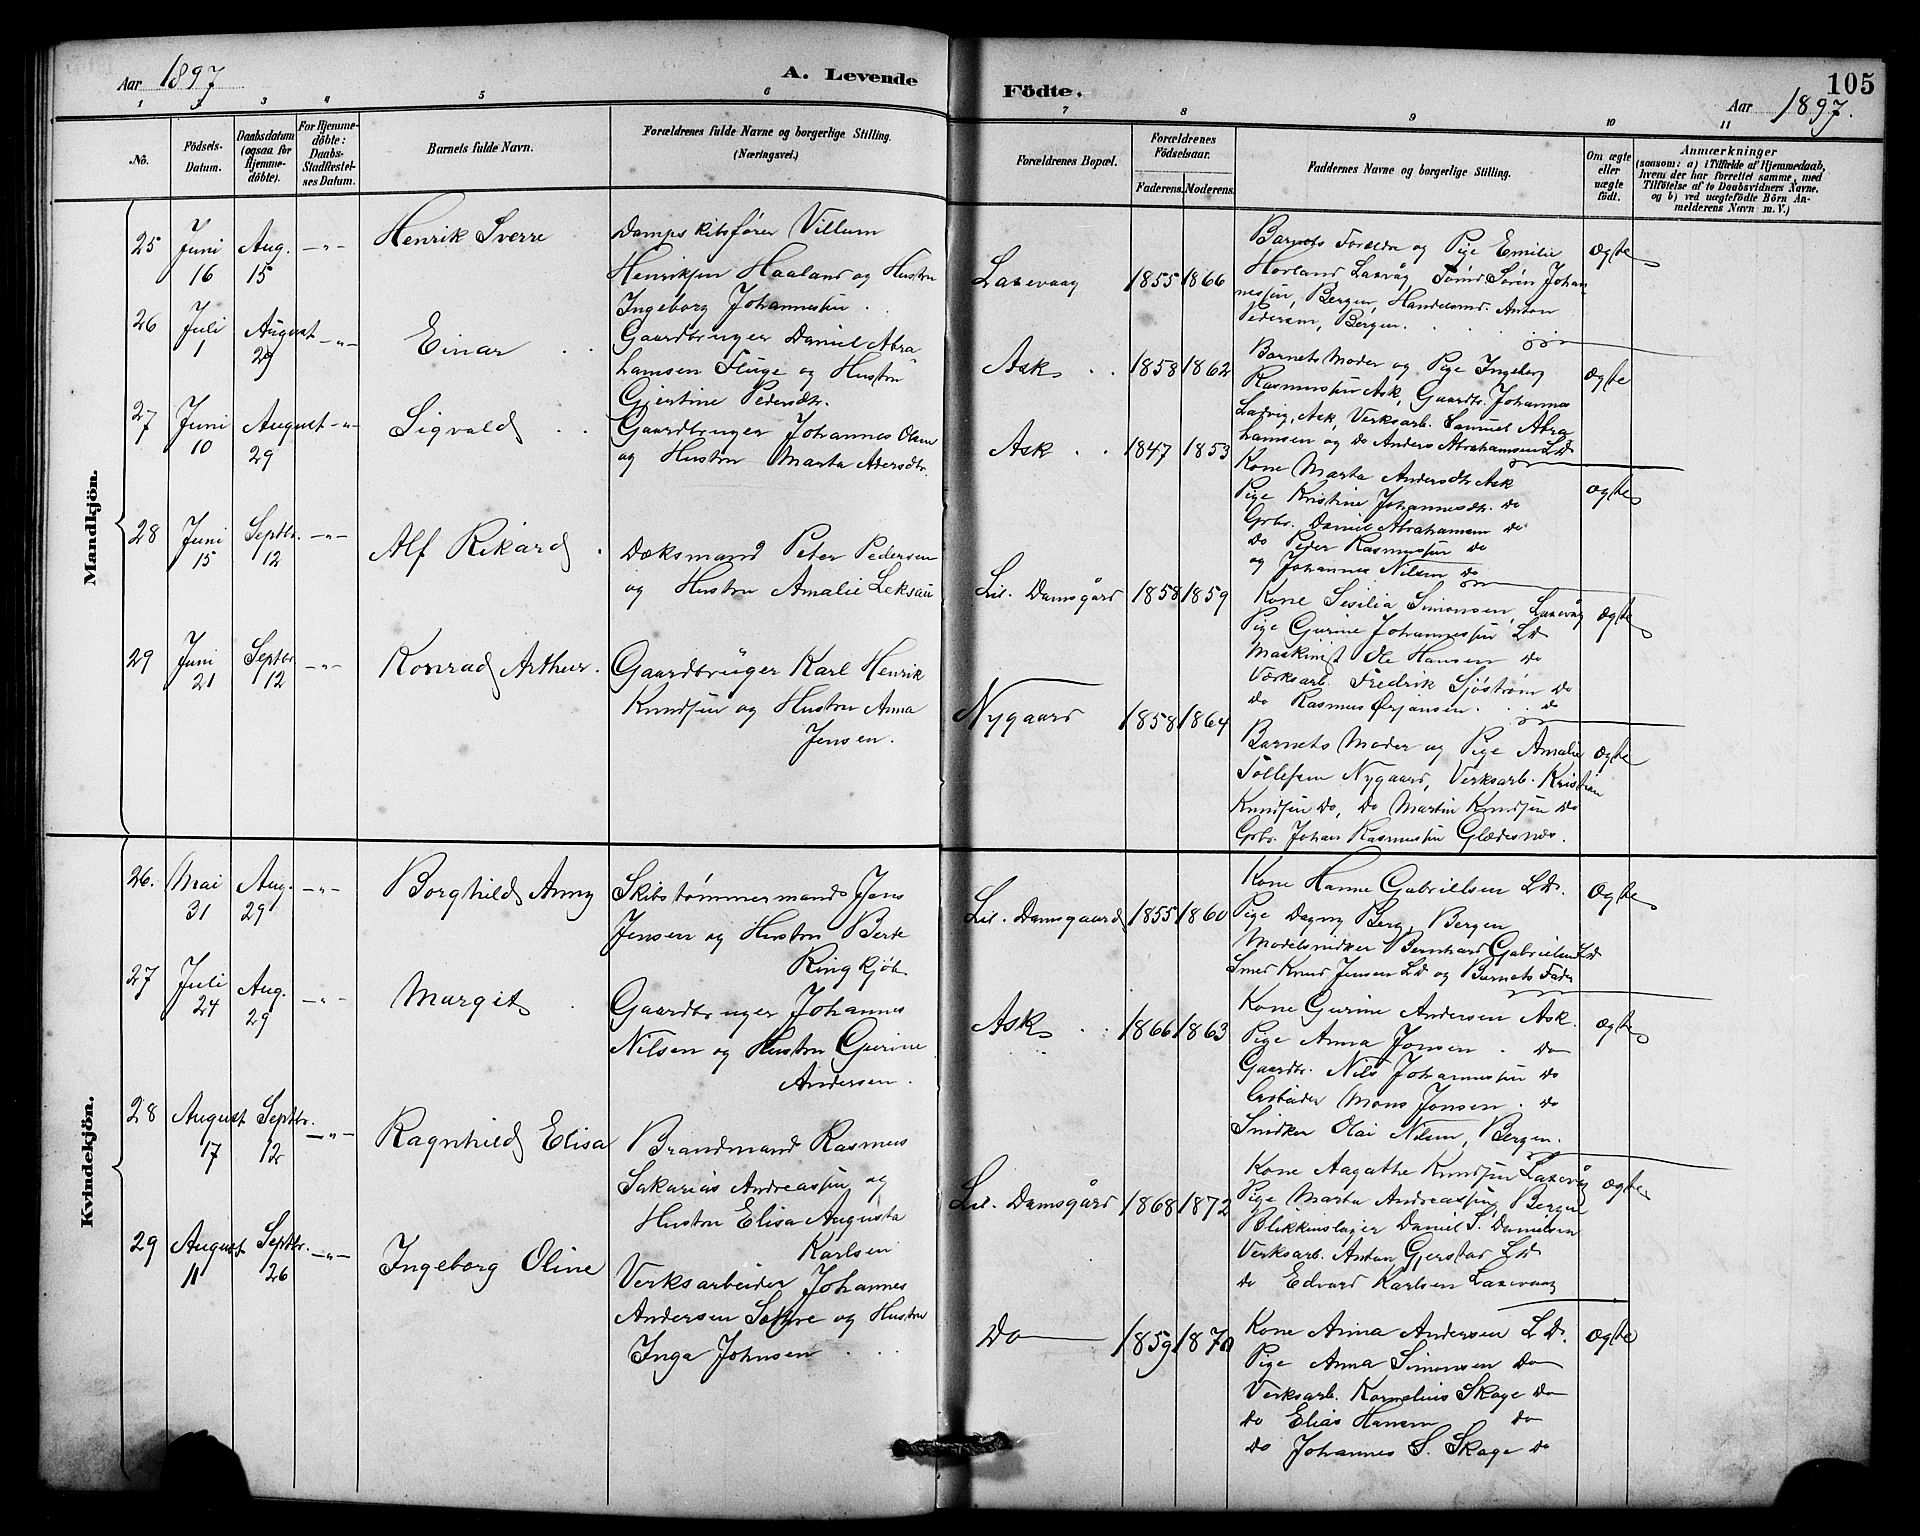 Aar 1897
A. Levende
Födte.
105
Aar 1897.
1 2 3 4 5 6 7 8 9 10 11
No.
Födsels-
Datum.
Daabsdatum
(ogsaa for
Hjemme-
döbte).
For Hjemme-
döbte:
Daabs-
Stadfæstel-
ses Datum.
Barnets fulde Navn.
Forældrenes fulde Navne og borgerlige Stilling.
(Næringsvei.)
Forældrenes Bopæl.
Forældrenes
Födselsaar.
Faderens. Moderens.
Faddernes Navne og borgerlige Stilling.
Om ægte
eller
uægte
födt.
Anmærkninger
(saasom: a) i Tilfælde af Hjemmedaab,
hvem der har forrettet samme, med
Tilföielse af to Daabsvidners Navne,
og b) ved uægtefödte Börn An-
melderens Navn m. V.)
Mandkjön.
25 Juni 16 Aug. 15 -"- Henrik Sverre
Dampskibsfører Villum
Henriksen Haaland og Hustru
Ingeborg Johannessen
Laxevaag 1855 1866
Barnets Forældre og Pige Emilie
Horland Laxvåg, Tømd Søren Johan-
nessen, Bergen, Handelsmd. Anton
Pedersen, Bergen.
Ægte
26 Juli 1 August 29 -"- Einar
Gaardbruger Daniel Abra
hamsen Fluge og Hustru
Gjertine Pedersdtr.
Ask 1858 1862
Barnets Moder og Pige Ingeborg
Rasmussen Ask, Gaardbr. Johannes
Ladvig, Ask, Verksarb. Samuel Abra
hamsen og do Anders Abrahamsen Ld
Ægte
27 Juni 10 August 29 -"- Sigvald
Gaardbruger Johannes Olsen
og Hustru Marta Adersdtr.
Ask 1847 1853
Kone Marta Andersdtr Ask
Pige Kristine Johannesdtr. Do
Grbr. Daniel Abrahamsen do
Do Peder Rasmussen do
og Johannes Nilsen do
Ægte
28 Juni 15 Septbr. 12 -"- Alf Rikard
Dæksmand Peter Pedersen
og Hustru Amalie Leksau
Lil. Damsgård 1858 1859
Kone Sesilia Simonsen, Laxevåg
Pige Gurine Johannessen Ld
Maskinist Ole Hansen do
Værksarb. Fredrik Sjøstrøm do
do Rasmus Ørjansen do
Ægte
29 Juni 21 Septbr 12 -"- Konrad Arthur.
Gaardbruger Karl Henrik
Knudsen og Hustru Anna
Jensen.
Nygaard 1858 1864
Barnets Moder og Pige Amalie
Tollefsen Nygaard, Verksarb. Kristian
Knudsen Do, Do Martin Knudsen Do
Grbr. Johan Rasmussen Glædesnes.
Ægte
Kvindekjön.
26. Mai 31 Aug. 29 -"- Borghild Anny
Skibstømmermand Jens
Jensen og Hustru Berte
Ringkjøb
Lil. Damsgaard 1855 1860
Kone Hanne Gabrielsen L D.
Pige Dagny Berg, Bergen
Modelsnidker Bernhard Gabrielsen Ld
Smed Knud Jensen Ld og Barnets Fader
Ægte
27 Juli 24 Aug. 29 -"- Margit
Gaardbruger Johannes
Nilsen og Hustru Gurine
Andersen.
Ask 1866 1863
Kone Gurine Andersen Ask.
Pige Anna Jonsen. do
Gaardbr. Nils Johannessen do
Arbeider Mons Jonsen. do
Snidker Olai Nilsen, Bergen.
Ægte
28 August 17 Septbr. 12 -"- Ragnhild Elisa
Brandmand Rasmus
Sakarias Andreassen og
Hustru Elisa Augusta
Karlsen
Lil. Damsgård 1868 1872
Kone Aagathe Knudsen Laxevåg
Pige Marta Andreassen, Bergen
Blikkenslager Daniel S. Danielsen
Verksarb. Anton Gjerstad Ld
do Edvard Karlsen Laxevaag
Ægte
29 August 11 Septbr. 26 -"- Ingeborg Oline
Verksarbeider Johannes
Andersen og Hustru
Inga Johnsen
Do 1859 1870
Kone Anna Andersen L D.
Pige Anna Simonsen Do
Verksarb. Kornelius Skage Do
do Elias Hansen do
do Johannes S. Skage do
Ægte